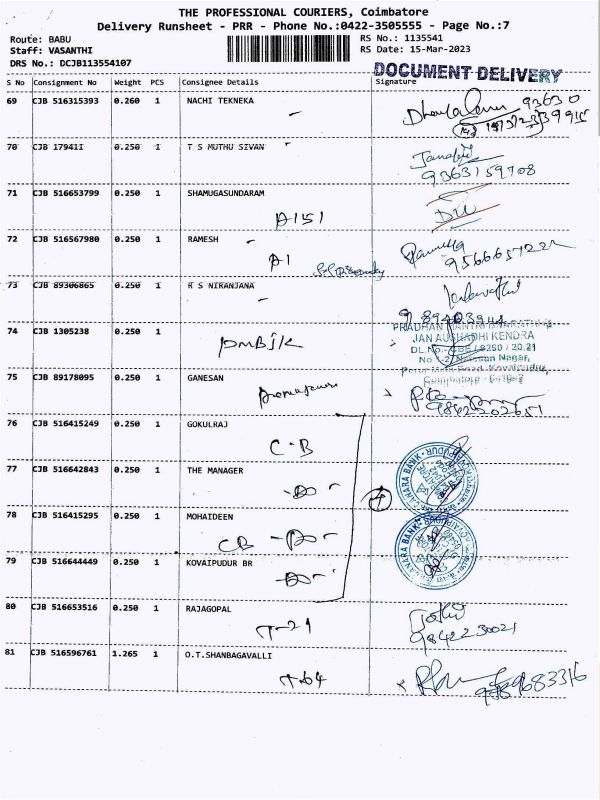 THE PROFESSIONAL COURIERS, Coimbatore
Delivery Runsheet - PRR - Phone No.:0422-3505555 - Page No.:7
Route: BABU
RS No.: 1135541
Staff: VASANTHI
RS Date: 15-Mar-2023
DRS No.: DCJB113554107
DOCUMENT DELIVERY
S No Consignment No Weight PCS Consignee Details Signature
69 CJB 516315393 0.260 1 NACHI TEKNEKA
70 CJB 179411 0.250 1 T S MUTHU SIVAN
9363159708
71 CJB 516653799 0.250 1 SHAMUGASUNDARAM
A151
72 CJB 516567980 0.250 1 RAMESH
A1
73 CJB 89306865 0.250 1 R S NIRANJANA
74 CJB 1305238 0.250 1
PMBJK
JAN AUSHADHI KENDRA
75 CJB 89178095 0.250 1 GANESAN
76 CJB 516415249 0.250 1 GOKULRAJ
C-B
77 CJB 516642843 0.250 1 THE MANAGER
-DO-
4
CANARA BANK
78 CJB 516415295 0.250 1 MOHAIDEEN
CB -DO-
CANARA BANK
79 CJB 516644449 0.250 1 KOVAIPUDUR BR
-DO-
80 CJB 516653516 0.250 1 RAJAGOPAL
T-21
9842230021
81 CJB 516596761 1.265 1 O.T.SHANBAGAVALLI
T-64